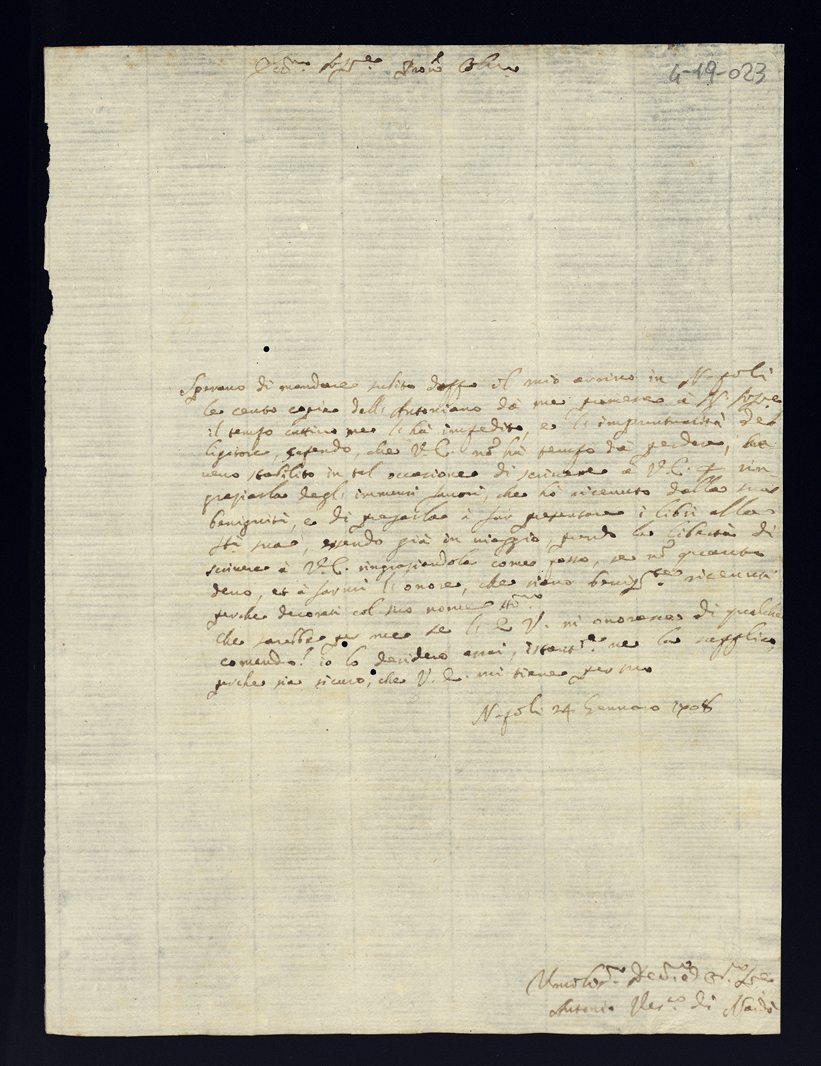 4-19-023
Ecc.mo Sig.re Pron Col.mo
Speravo di mandare subito doppo il mio arrivo in Napoli
le cento copie dell'Antoniano da me promesse à
il tempo cattivo me l'hà impedito, e l'impuntualità del
ligatore, essendo, che V.E. nõ hà tempo da perdere, ha
vevo stabilito in tal occasione di scrivere à V.E. e rin
graziarla degl'immensi favori, che hò ricevuto dalla sua
benignità, e di pregarla à far presentare i libri alla
Stà sua, essendo già in viaggio, prendo la libertà di
scrivere à V.E. ringraziandola come posso, se nõ quanto
devo, et à farmi l'onore, che siano benig.te ricevuti
perche decorati col suo nome Ill.mo
che sarebbe per me se l'E.V. mi onorasse di qualche
comando! io lo desidero assai, istant.e ne la supplico,
perche sia sicuro, che V.E. mi tiene per suo
Napoli 24 Gennaro 1708
Umiliss.mo Dev.mo ed Obl.mo Ser.e
Antonio Ves.co di Nardò